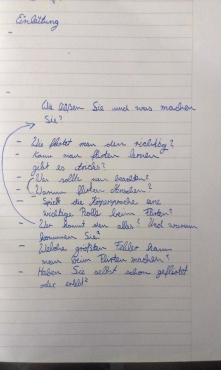 Einleitung
Wie heißen Sie und was machen
Sie?
- Wie flirtet man denn richtig?
- Kann man flirten lernen
gibt es tricks?
- Was sollte man beachten?
- Warum flirten Menschen?
- Spielt die Körpersprache eine
wichtige Rolle beim Flirten?
- Wer kommt den alles? Und warum
kommen Sie?
- Welche größten Fehler kann
man beim Flirten machen?
- Haben Sie selbst schon geflirtet
oder erlebt?